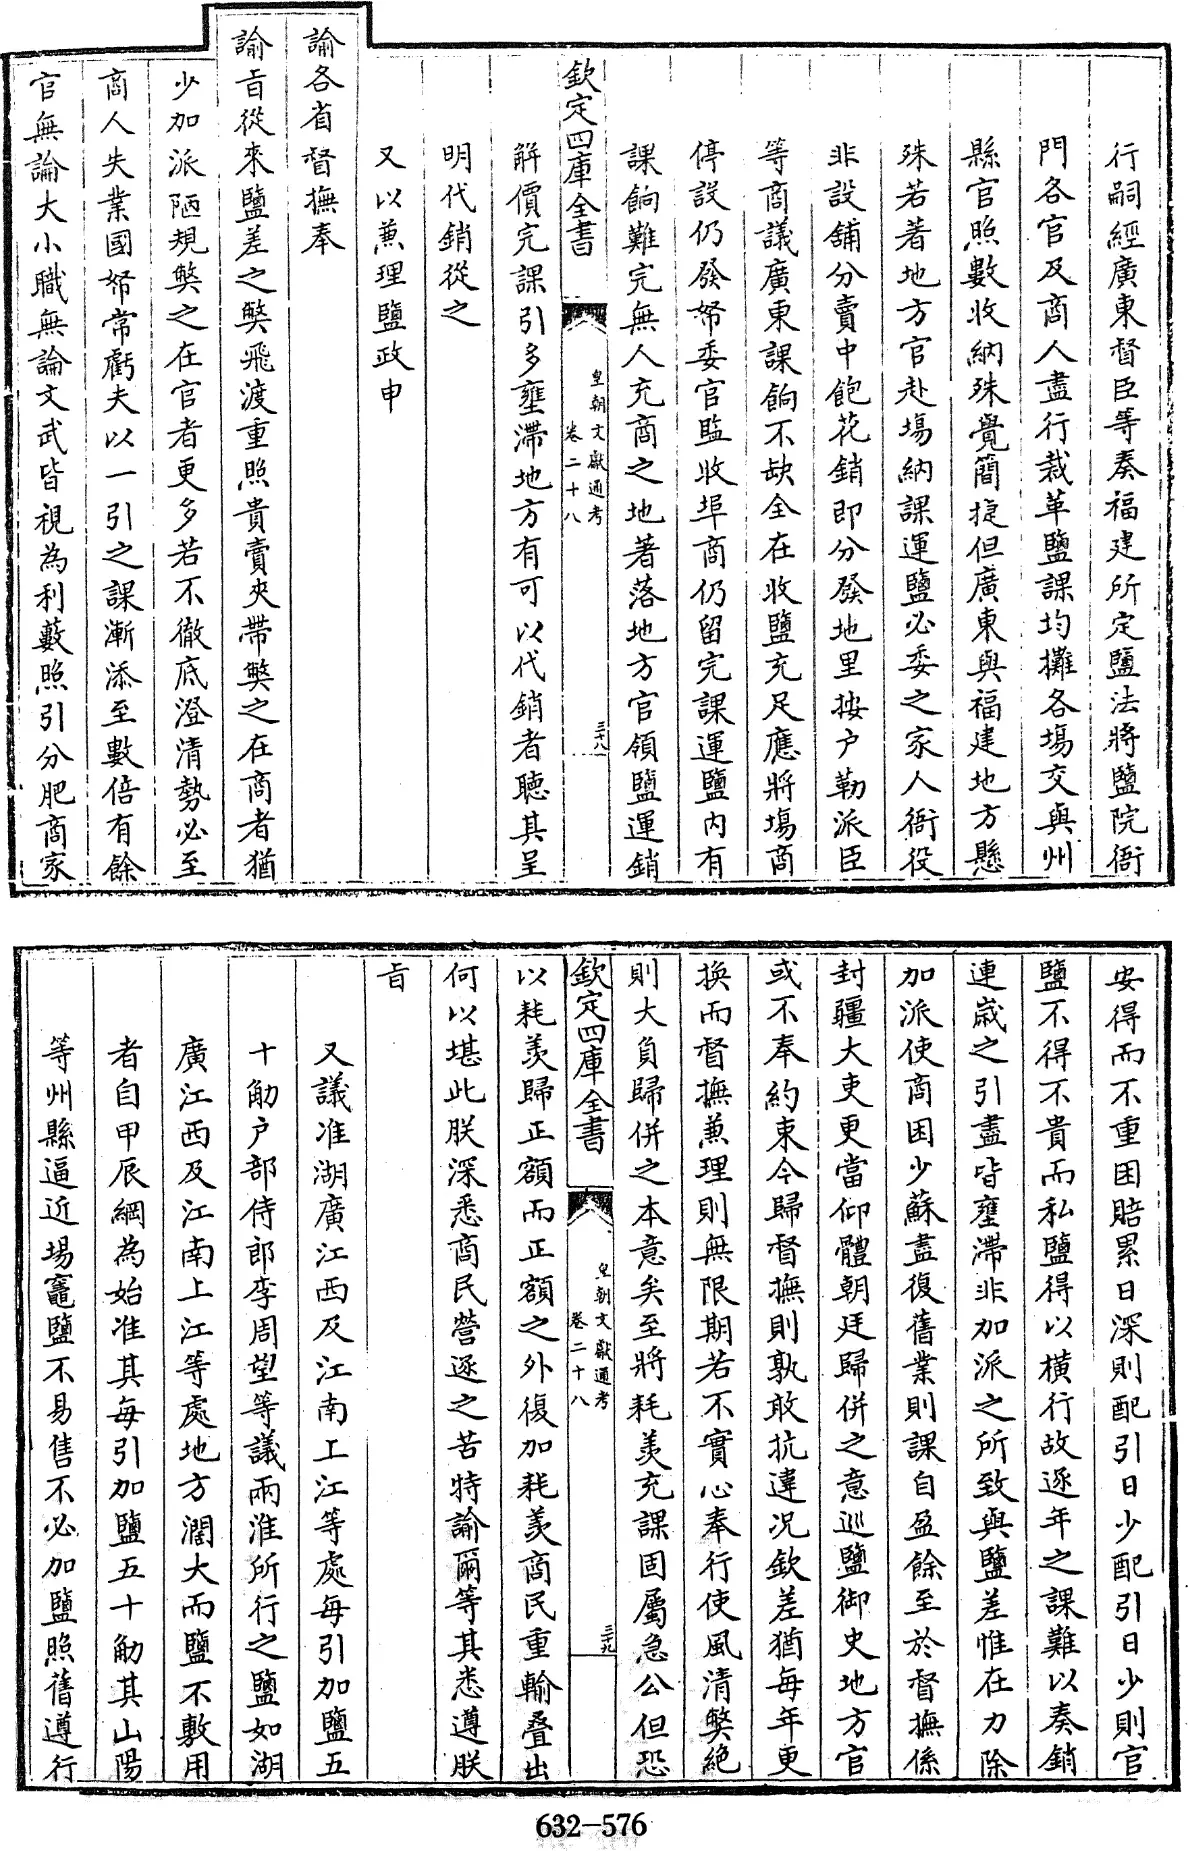 行嗣經廣東督臣等奏福建所定鹽法將鹽院衙
門各官及商人盡行裁革鹽課均攤各場交與州
縣官照數收納殊覺簡捷但廣東與福建地方懸
殊若著地方官赴場納課運鹽必委之家人衙役
非設舖分賣中飽花銷即分發地里按户勒派臣
等商議廣東課餉不缺全在收鹽充足應將場商
停設仍發帑委官監收埠商仍留完課運鹽内有
課餉難完無人充商之地著落地方官領鹽運銷
欽定四庫全書
皇朝文獻通考
卷二十八
三十八
解價完課引多壅滯地方有可以代銷者聽其呈
明代銷從之
又以蒹理鹽政申
諭各省督撫奉
諭㫖從來鹽差之弊飛渡重照貴賣夾帶弊之在商者猶
少加派陋規弊之在官者更多若不徹底澄清勢必至
商人失業國帑常虧夫以一引之課漸添至數倍有餘
官無論大小職無論文武皆視為利藪照引分肥商家
安得而不重困賠累日深則配引日少配引日少則官
鹽不得不貴而私鹽得以横行故逐年之課難以奏銷
連嵗之引盡皆壅滯非加派之所致與鹽差惟在力除
加派使商困少蘇盡復舊業則課自盈餘至於督撫係
封疆大吏更當仰體朝廷歸併之意巡鹽御史地方官
或不奉約束今歸督撫則孰敢抗違况欽差猶每年更
換而督撫蒹理則無限期若不實心奉行使風清弊絶
則大負歸併之本意矣至將耗羡充課固屬急公但恐
欽定四庫全書
皇朝文獻通考
卷二十八
三十九
以耗羡歸正額而正額之外復加耗羡商民重輸疊出
何以堪此朕深悉商民營逐之苦特諭爾等其悉遵朕
㫖
又議准湖廣江西及江南上江等處每引加鹽五
十觔户部侍郎李周望等議兩淮所行之鹽如湖
廣江西及江南上江等處地方濶大而鹽不敷用
者自甲辰綱為始准其每引加鹽五十觔其山陽
等州縣逼近場竈鹽不易售不必加鹽照舊遵行
632—576